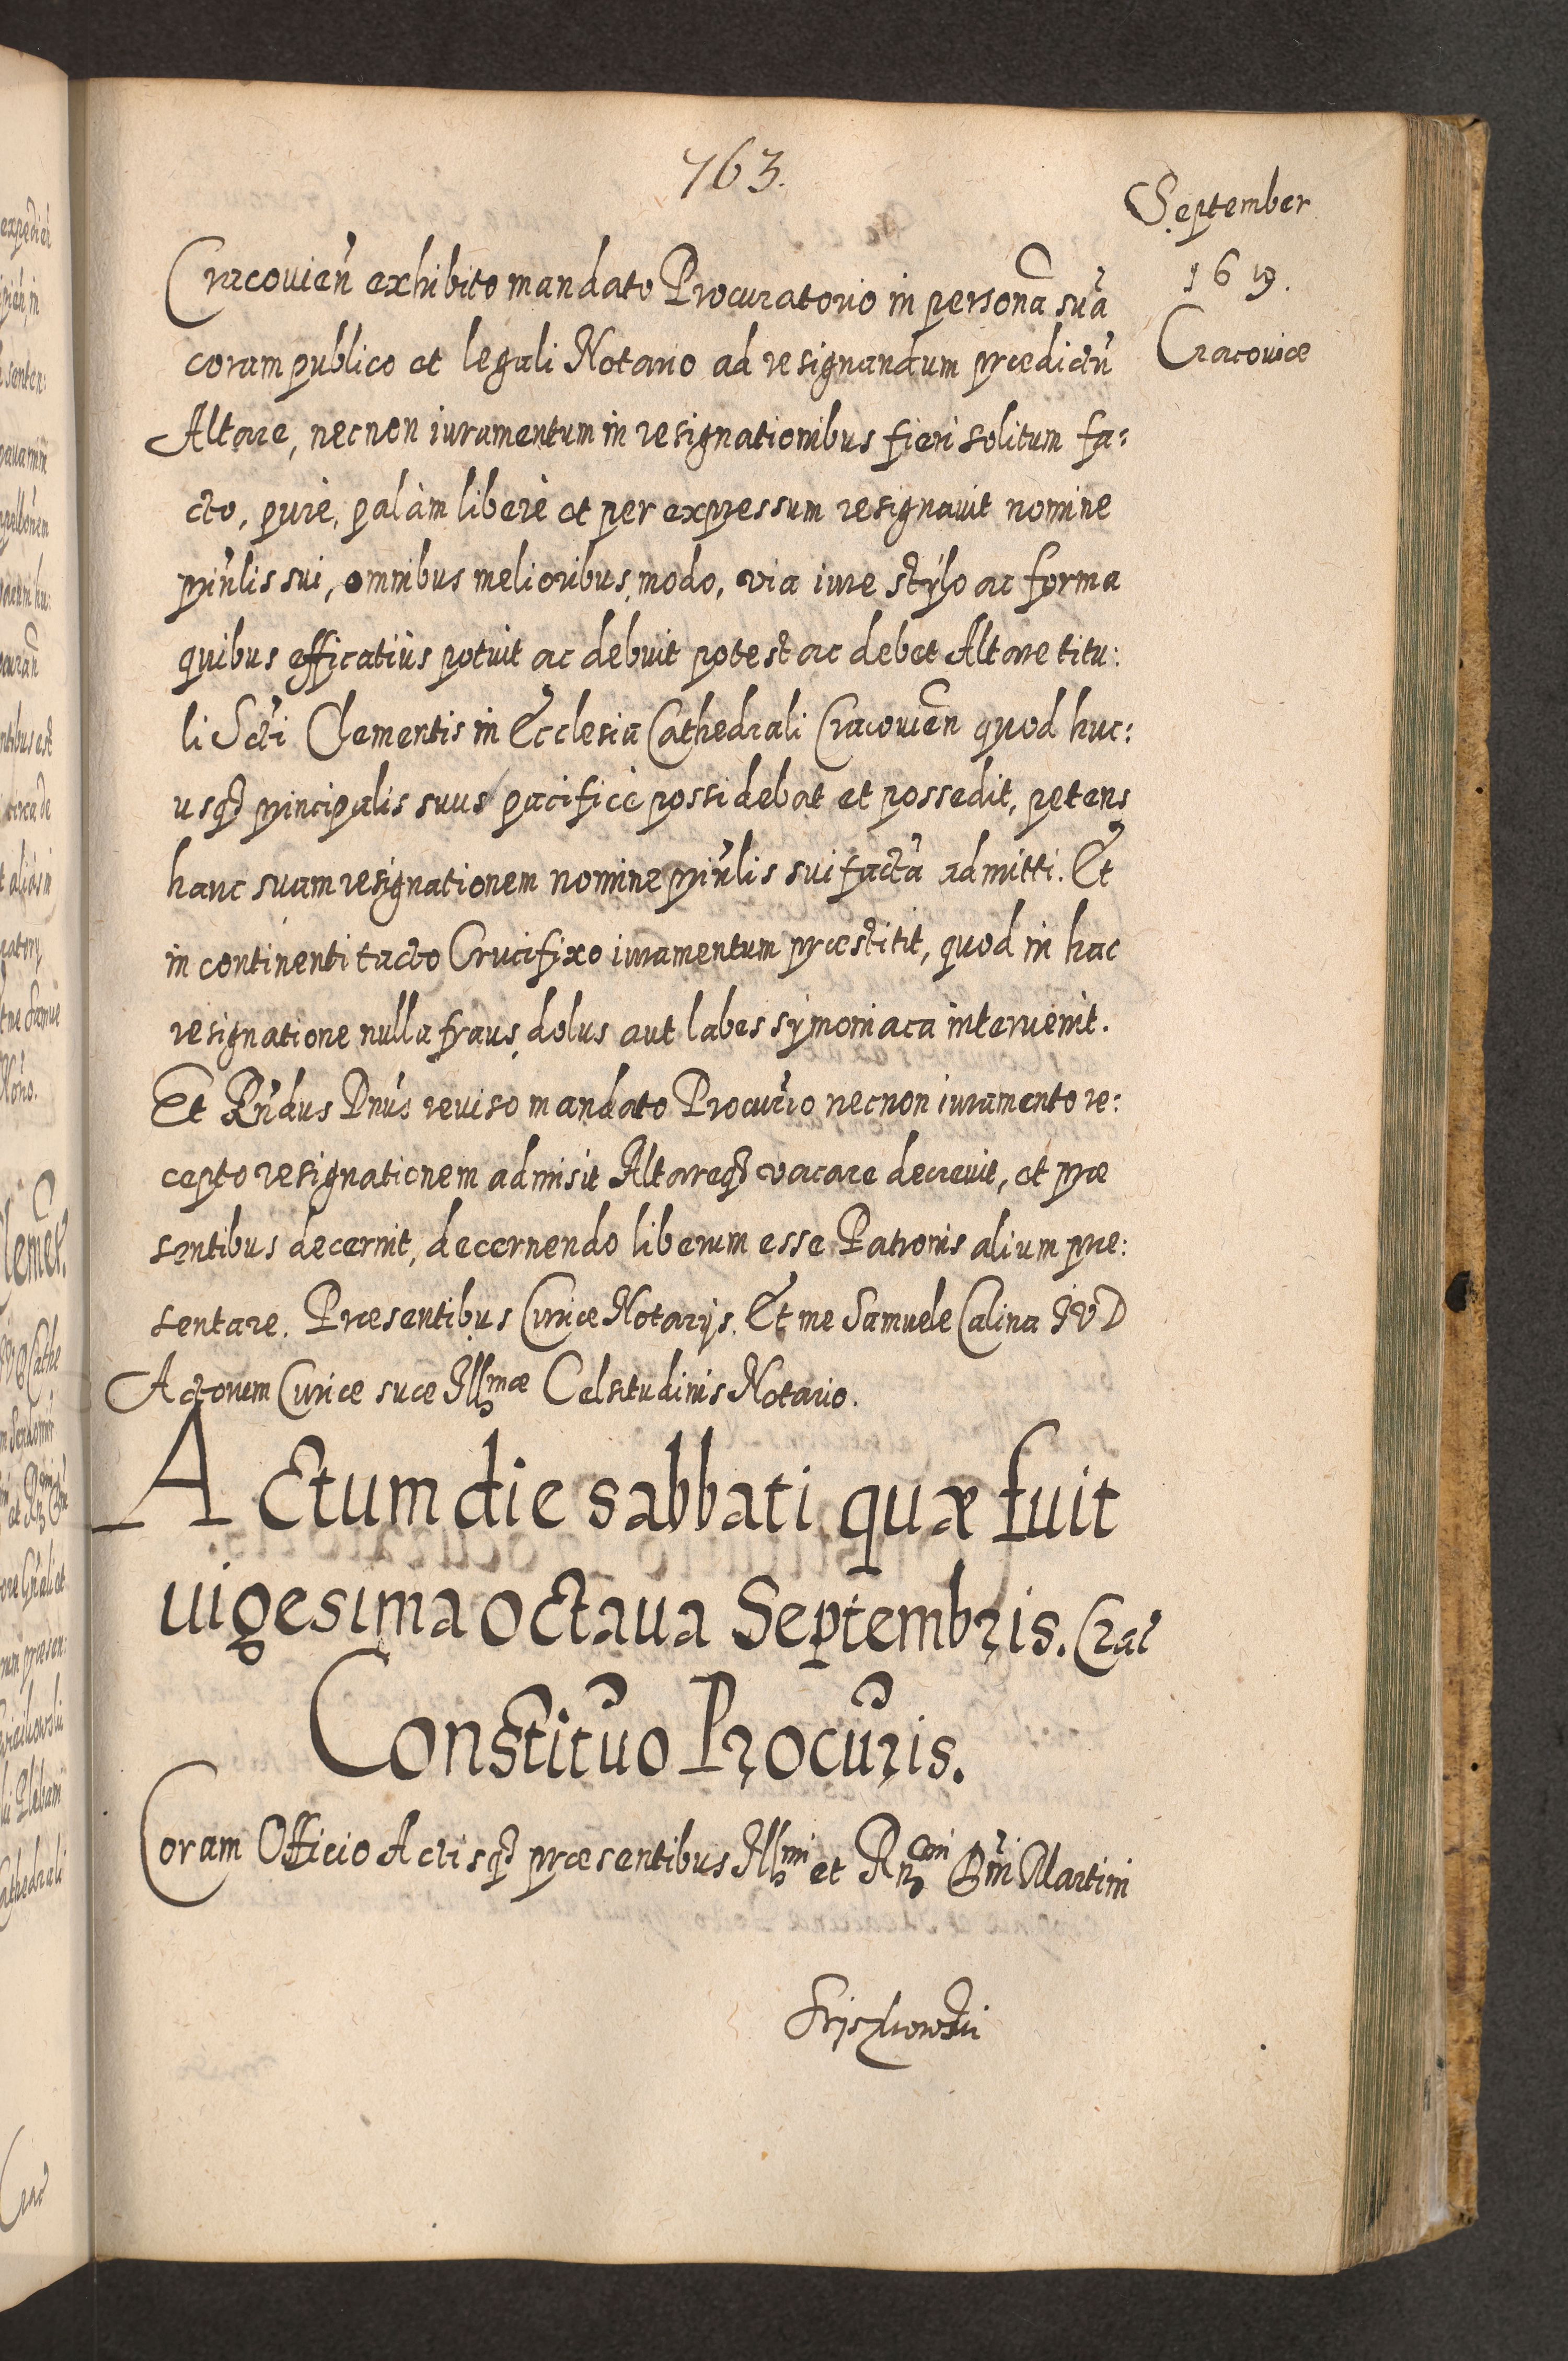 763.
September
1619.
Cracoviæ
Cracovieñ exhibito mandato Procuratorio in persona sua
coram publico et legali Notario ad resignandum prædictũ
Altare, necnon iuramentum in resignationibus fieri solitum fa:
cto, pure, palàm liberè et per expressum resignavit nomine
prinlis sui, omnibus melioribus, modo, via iure stylo ac forma
quibus efficatiùs potuit ac debuit potest ac debet Altare titu:
li Scti Clementis in Ecclesia Cathedrali Cracovien quod huc:
usq principalis suus pacificè possidebat et possedit, petens
hanc suam resignationem nomine prinlis sui factã admitti. Et
in continenti tacto Crucifixo iuramentum præstitit, quod in hac
resignatione nulla fraus, dolus aut labes symoniaca intervenit.
Et Rñdus Dnus reviso mandato Procurio necnon iuramento re:
cepto resignationem admisit Altareq vacare decrevit, et præ
sentibus decernit, decernendo liberum esse Patronis alium præ:
sentare. Præsentibus Curiæ Notarijs. Et me Samuele Calina IVD
Actorum Curiæ suæ Illmæ Celsitudinis Notario.
Actum die sabbati quæ fuit
vigesima octava Septembris. Crac
Constituo Procuris.
Coram Officio Actisq præsentibus Illmi et Rmi Dni Martini